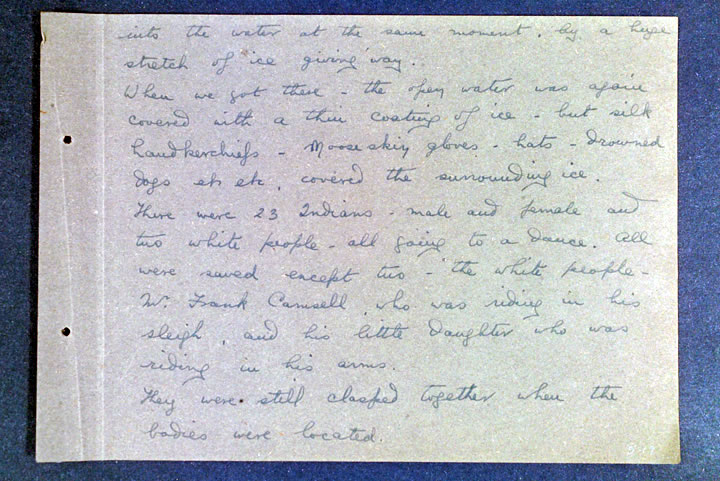 into the water at the same moment. by a huge
stretch of ice giving way.
When we got there - the open water was again
covered with a thin coating of ice - but silk
handkerchiefs - Mooseskin gloves - hats - drowned
dogs etc etc, covered the surrounding ice.
There were 23 Indians - male and female and
two white people - all going to a dance. All
were saved except two - the white people -
Mr. Frank Camsell, who was riding in his
sleigh, and his little daughter who was
riding in his arms.
They were still clasped together when the
bodies were located.